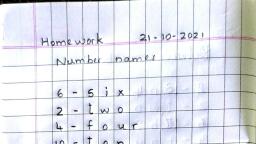 Homework 21-10-2021
Number names
6 - Six
2 - two
4 - four
10 - ten